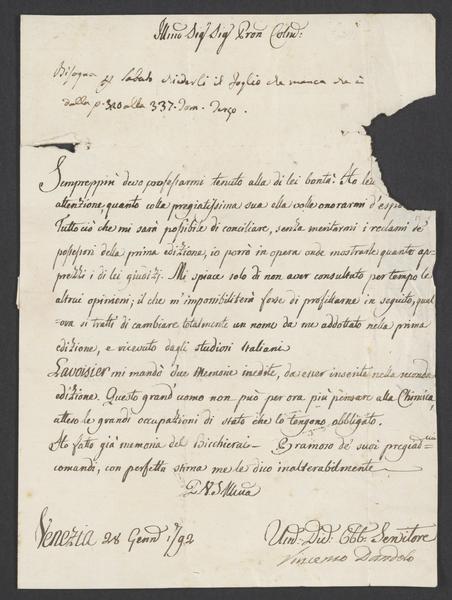 Illmo Sigr Sigr Pron Colmo:
Bisogna p Sabato chiederli il foglio che manca che è
dalla p. 320 alla 337. Tom. Terzo.
Sempreppiù devo confessarmi tenuto alla di lei bontà. Ho le
attenzione quanto colla pregiatissima sua ella volle onorarmi d'espo
Tutto ciò che mi sarà possibile di conciliare, senza meritarmi i reclami de'
possessori della prima edizione, io porrò in opera onde mostrarle quanto ap-
prezzi i di lei giudizj. Mi spiace solo di non aver consultato per tempo le
altrui opinioni; il che m'imponibiliterà forse di profittarne in seguito, qual
=ora si tratti di cambiare totalmente un nome da me addottato nella prima
edizione, e ricevuto dagli studiosi Italiani
Lavoisier mi mandò due Memorie inedite, da esser inserite nella seconda
edizione. Questo grand'uomo non può per ora più pensare alla Chimica,
atteso le grandi occupazioni di stato che lo tengono obbligato.
Ho fatto già memoria del Bicchierai — Bramoso de' suoi pregiatmi
comandi, con perfetta stima me le dico inalterabilmente
D V S Illma
Venezia 28 Gennº 1792
Umo: Divo: Obbo: Servitore
Vincenzo Dandolo